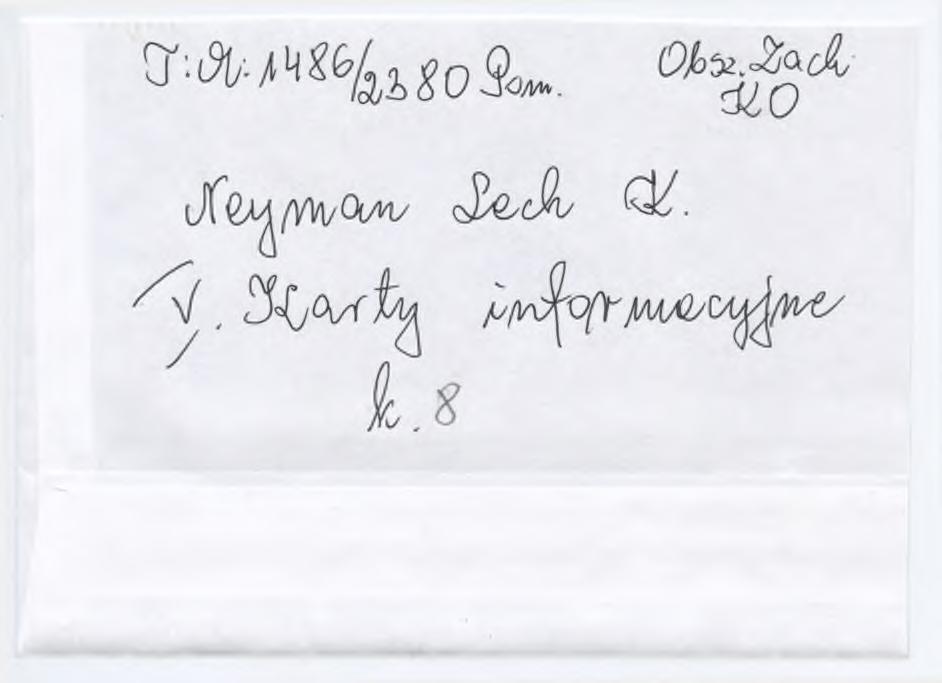 T: A: 1486/2380 Pom. Obsz. Zach.
KO
Neyman Lech K.
V. Karty informacyjne
k. 8